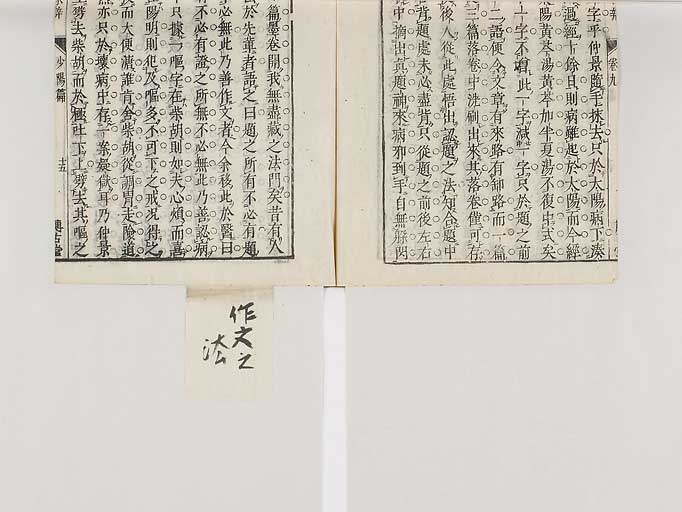 字平仲景隨手抹去只於太陽病下湊
過經十餘日則病雖起於太陽而今經
陽黃芩湯黃芩加半夏湯不復出式矣
十字不增此一字減一字只於題之前
二語便令文章有來路有卸路而一篇
三篇落卷中洗刷出來其落卷僅可存
後人從此處悟出認題之法知合題中
背題處未必盡背只從題之前後左右
中摘出真題神來病邪到手自無躲閃
卷九
篇墨卷開我無盡藏之法門矣昔有人
公於先輩者語之曰題之所有不必有題
必無此乃善作文者今余移此於醫曰
所不必有證之所無不必無此乃善認病
只據一嘔字在柴胡則如夫心煩而喜
陽明則犯及嘔多不可下之戒况得之
而大便溏誰肯舍柴胡從調胃走險道
亦只於壞病出存一案疑獄耳乃仲景
劈去柴胡而於極吐下上劈去其嘔之
少陽篇
十五
作文之
法